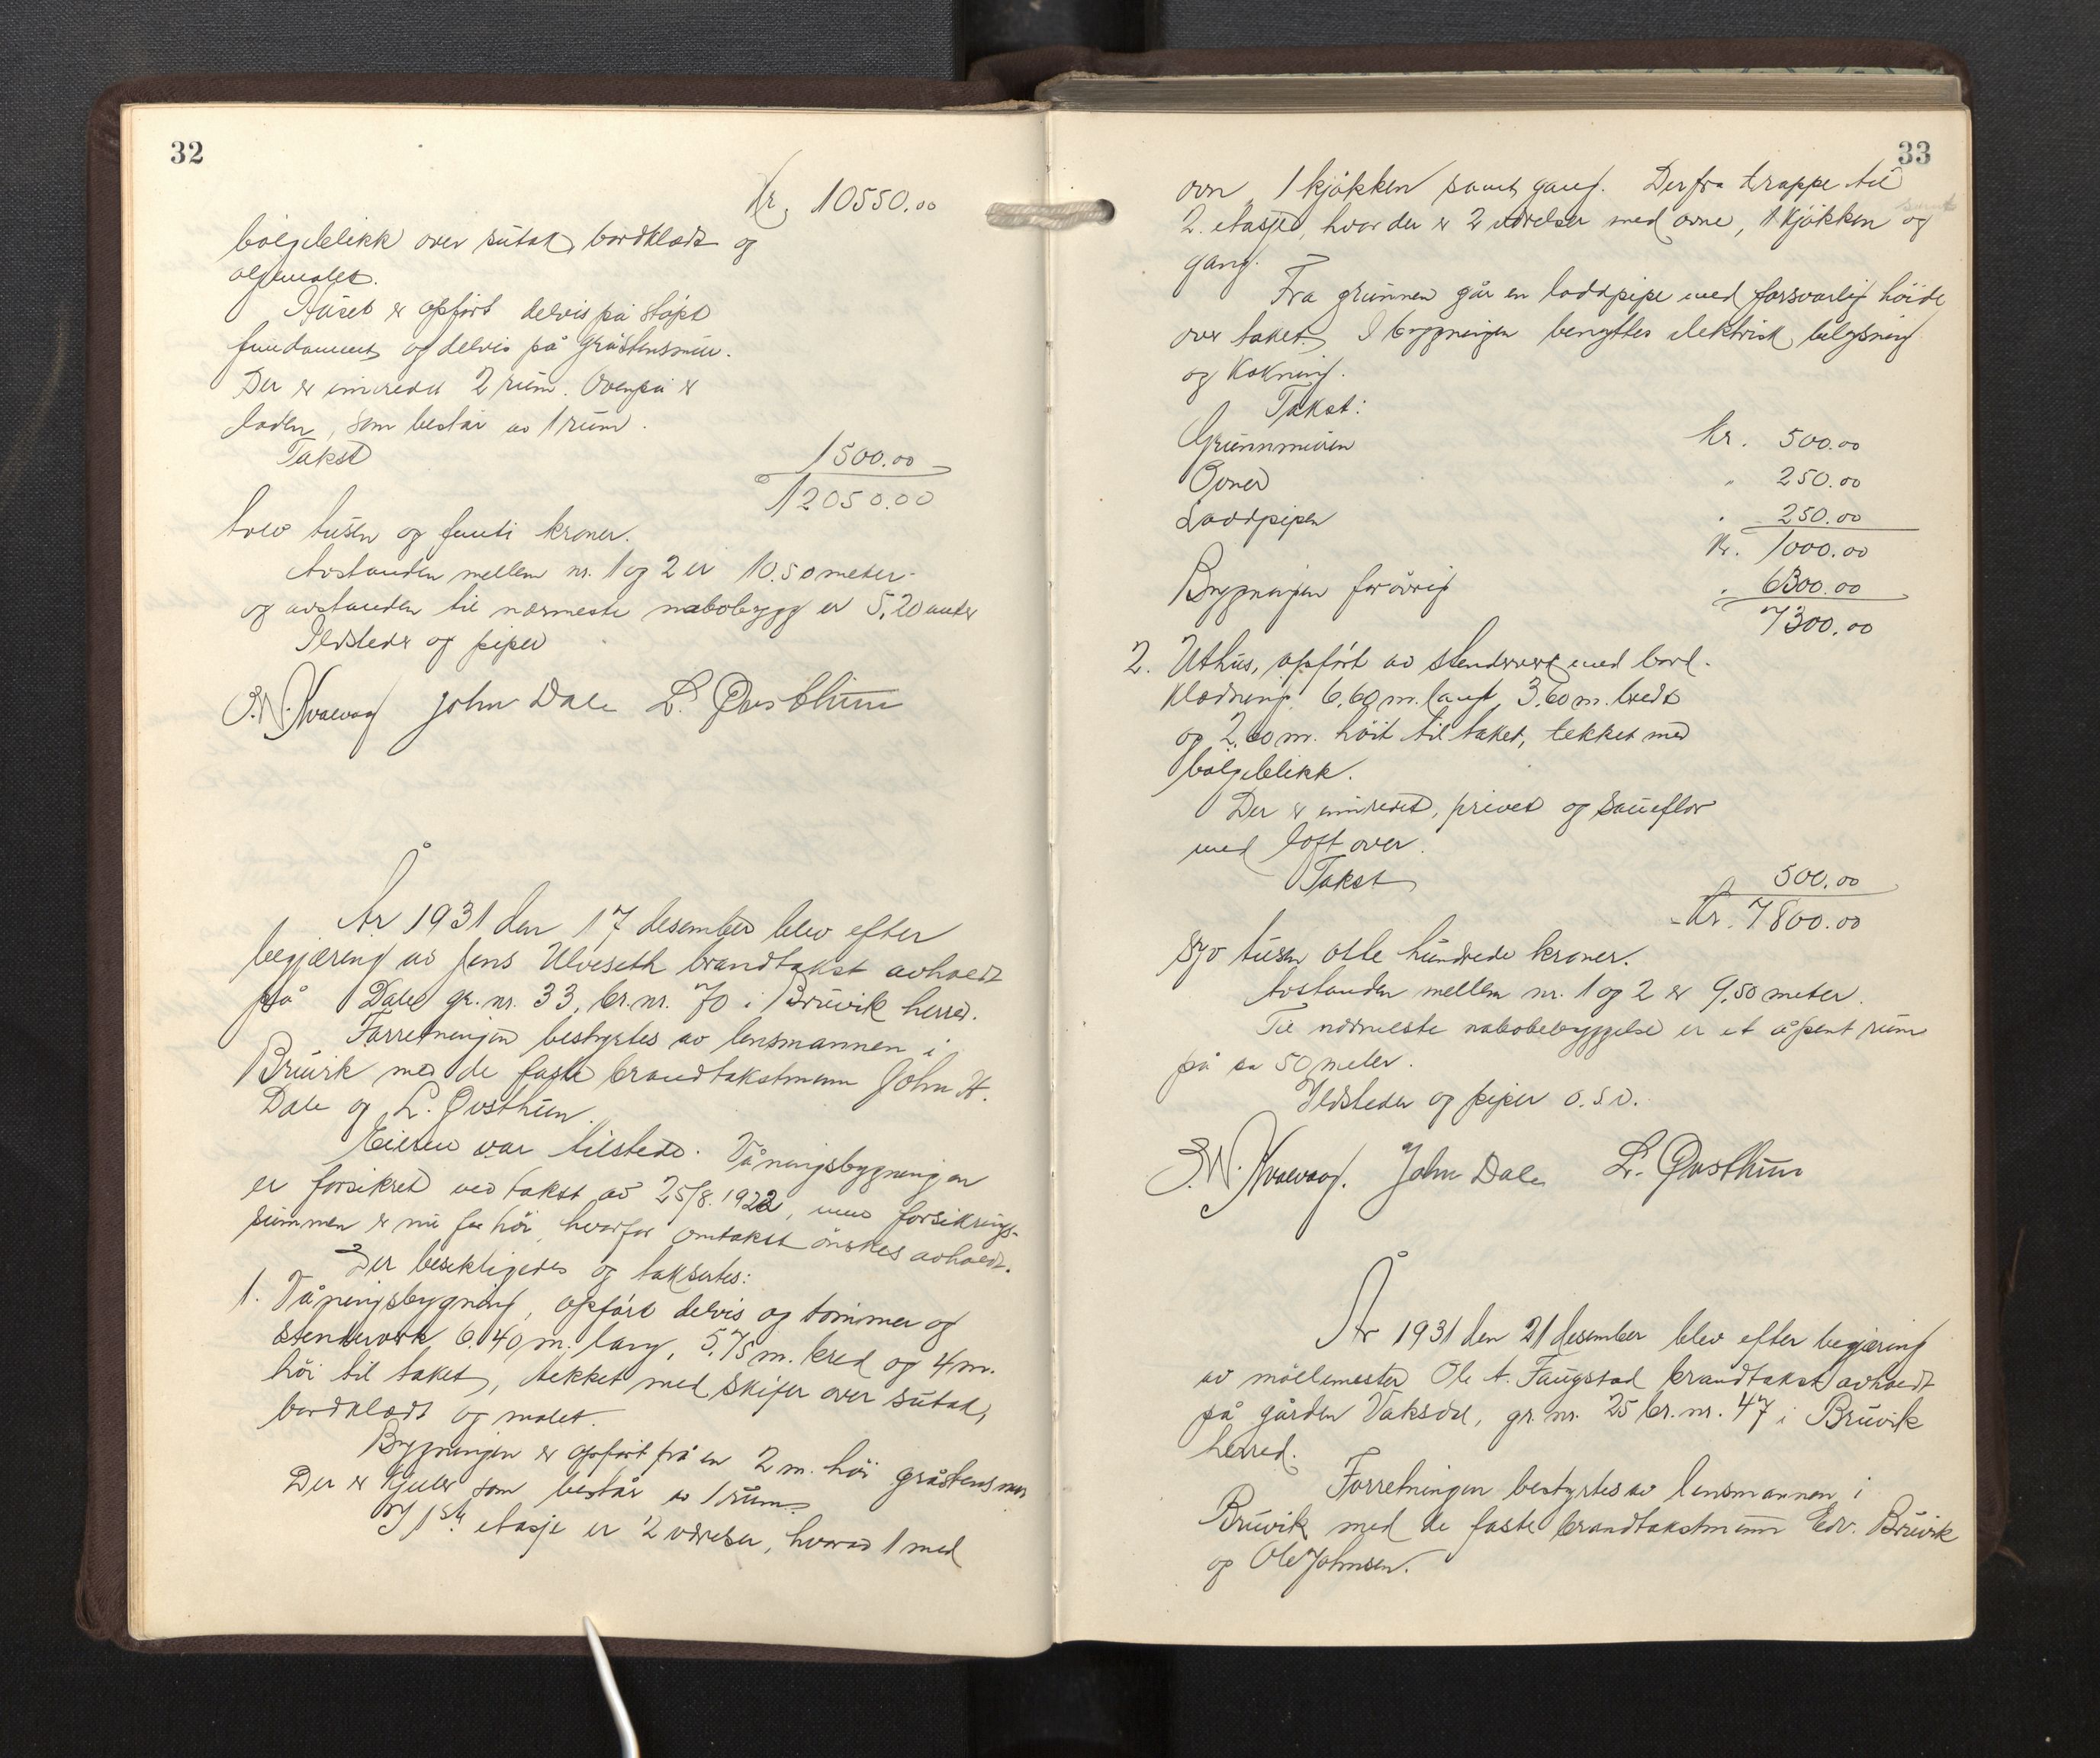 32
Kr. 10550.00
bølgeblikk over sutak, bordklædt og
oljemalet.
Huset er opført delvis på støpt
fundament og delvis på gråstensmur.
Der er innredet 2 rum. Ovenpå er
laden, som består av 1 rum.
Takst 1500.00
12050.00
tolv tusen og femti kroner.
Avstanden mellem nr. 1 og 2 er 10.50 meter
og avstanden til nærmeste nabobygg er 5,20 meter
Ildsteder og piper
John Dale L. Øvsthun
År 1931 den 17 desember blev efter
begjæring av Jens Ulveseth brandtakst avholdt
på Dale gr. nr. 33, br. nr. 70 i Bruvik herred.
Forretningen bestyrtes av lensmannen i
Bruvik med de faste brandtakstmenn John H.
Dale og L. Øvsthun.
Eieren var tilstede. Våningsbygningen
er forsikret ved takst av 25/8. 1922, men forsikrings-
summen er nu for høi, hvorfor omtakst ønskes avholdt.
Der besiktigedes og taksertes:
1. Våningsbygning, opført delvis og tømmer og
stenderverk 6.40 m. lang, 5,75 m. bred og 4 m.
høi til taket, tekket med skifer over sutak,
bordklædt og malet.
Bygningen er opført på en 2 m. høi gråstensmur
Der er kjeller som består av 1 rum.
I 1ste etasje er 2 værelser, hvorav 1 med
33
ovn, 1 kjøkken samt gang. Derfra trappe til
2. etasje, hvor der er 2 værelser med ovne, 1 kjøkken og
gang.
Fra grunnen går en loddpipe med forsvarlig høide
over taket. I bygningen benyttes elektrisk belysning
og kokning.
Takst:
Grunnmuren kr. 500.00
Ovner " 250.00
Loddpipen " 250.00
Kr. 1000.00
Bygningen forøvrig " 6300.00
7300.00
2. Uthus, opført av stenderverk med bord-
klædning 6,60 m. langt, 3.60 m. bredt
og 2,60 m. høit til taket, tekket med
bølgeblikk.
Der er innredet, privet og saueflor
med loft over.
Takst 500.00
Kr. 7800.00
syv tusen otte hundrede kroner.
Avstanden mellem nr. 1 og 2 er 9,50 meter.
Til nærmeste nabobebyggelse er et åpent rum
på ca 50 meter.
Ildsteder og piper o.s.v.
John Dale L. Øvsthun
År 1931 den 21 desember blev efter begjæring
av møllemester Ole A. Faugstad brandtakst avholdt
på gården Vaksdal, gr. nr. 25 br. nr. 47 i Bruvik
herred.
Forretningen bestyrtes av lensmannen i
Bruvik med de faste brandtakstmenn Edv. Bruvik
og Ole Johnsen.